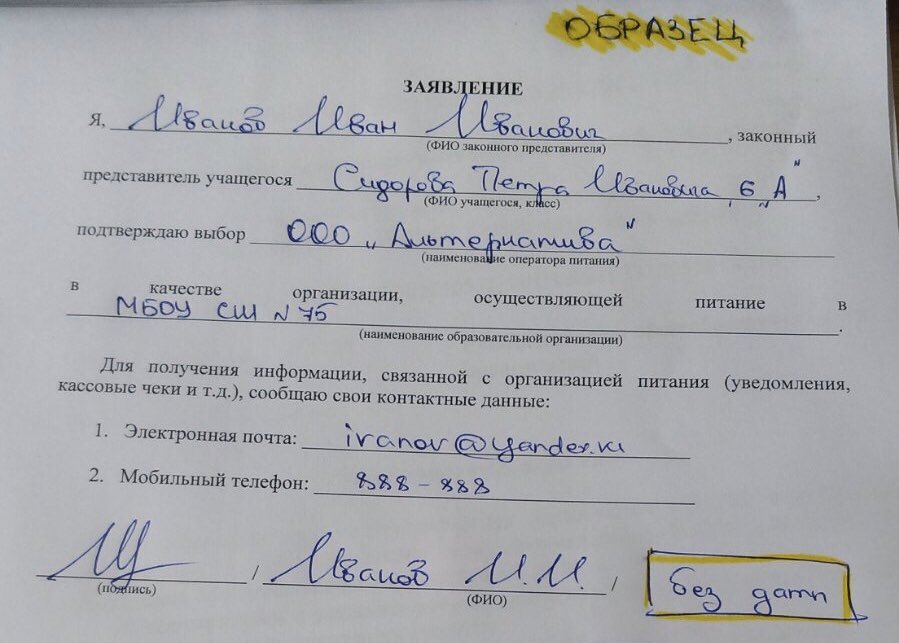 ОБРАЗЕЦ
ЗАЯВЛЕНИЕ
Я, Иванов Иван Иванович, законный
(ФИО законного представителя)
представитель учащегося Сидорова Петра Ивановича, 6 „А",
(ФИО учащегося, класс)
подтверждаю выбор ООО „Альтернатива"
(наименование оператора питания)
в качестве организации, осуществляющей питание в
МБОУ СШ N 75.
(наименование образовательной организации)
Для получения информации, связанной с организацией питания (уведомления,
кассовые чеки и т.д.), сообщаю свои контактные данные:
1. Электронная почта: ivanov@yandex.ru
2. Мобильный телефон: 888-888
/ Иванов И.И. /
(подпись) (ФИО)
без даты